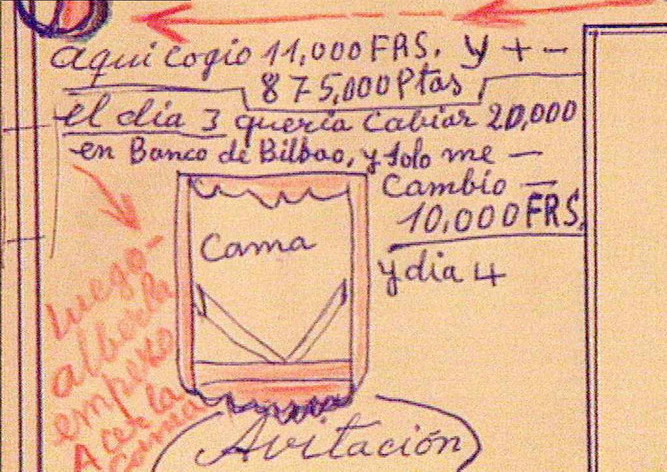 aqui cogio 11,000 FRS. y + -
875,000 Ptas
el dia 3 queria Cabiar 20,000
en Banco de Bilbao, y solo me —
Cambio —
10,000 FRS.
y dia 4
Cama
Luego-
alberla
empexo
A cer la
cama
Avitación